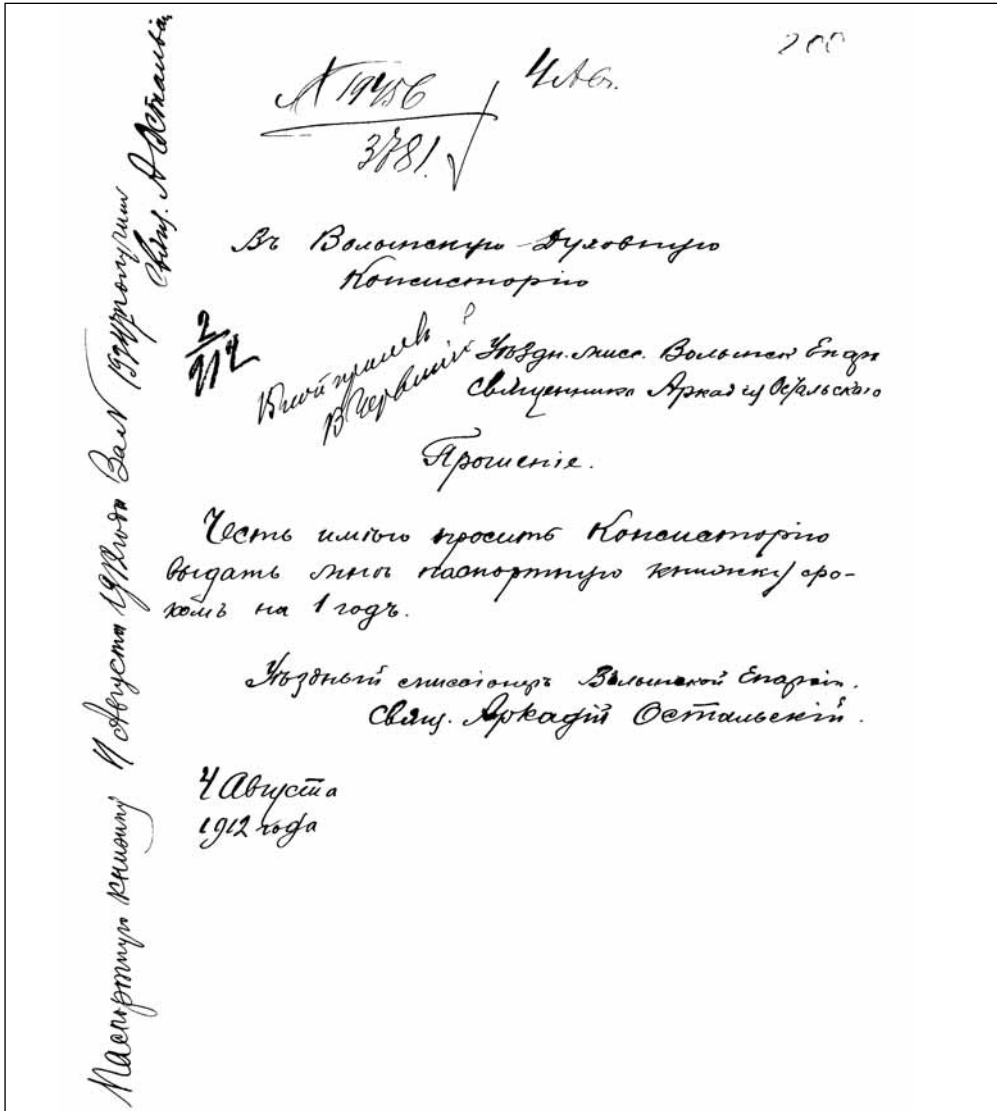 200
№ 19456
4 Авг.
3781.
Въ Волынскую Духовную
Консисторію
2
912
Уѣздн. мисс. Волынск Епарх
Священника Аркадія Остальскаго
Прошеніе.
Честь имѣю просить Консисторію
выдать мнѣ паспортную книжку сро-
комъ на 1 годъ.
Уѣздный миссіонеръ Волынской Епархіи.
Свящ. Аркадій Остальскій.
4 Августа
1912 года
Паспортную книжку 11 Августа 1912 года За №
получил
Свящ. А Остальскій